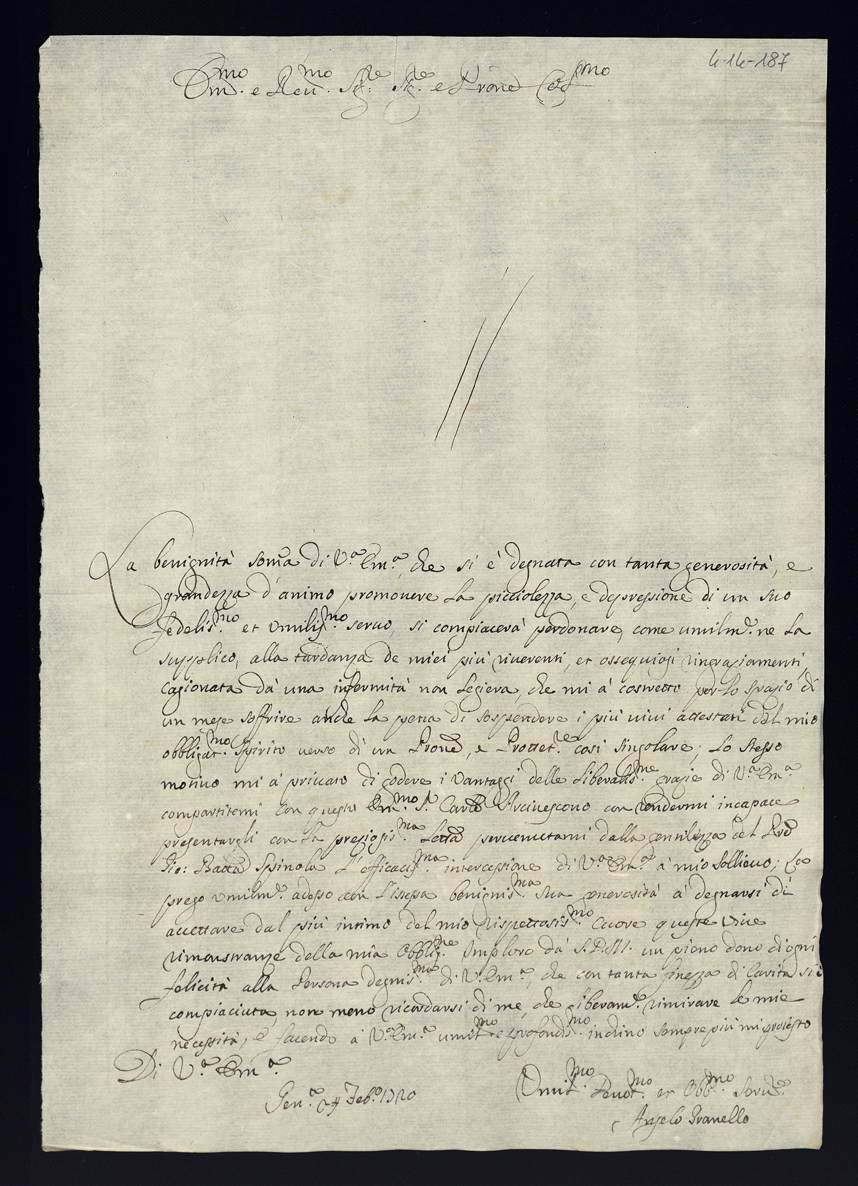 4-14-187
Em.mo e Reu.mo Sig.re Sig.re e Prone Col.mo
La benignità som̃a di V.a Em.a che si è degnata con tanta generosità, e
grandezza d'animo promouere la picciolezza, e depressione di un suo
fedelis.mo et Umilis.mo seruo, si compiacerà perdonare, come umilm.e ne la
supplico, alla tardanza de miei più riuerenti, et ossequiosi ringraziamenti,
cagionata dà una infermità non legiera, che mi à costretto per lo spazio di
un mese soffrire anche la pena di sospendere i più uiui attestati del mio
obbligat.mo Spirito uerso di un Prone, e Protet.re così singolare; Lo stesso
motiuo mi à priuato di godere i Vantaggi delle liberalis.me grazie di V.a Em.a
compartitemi con questo Em.mo S. Card. Arciuescouo con rendermi incapace
presentargli con la preziosis.ma Lettã peruenutami dalla gentilezza del
Gio: Battã Spinola L'efficacis.ma intercessione di V.a Em.a à mio Sollieuo;
prego umilm.e adesso con l'istessa benignis.ma sua generosità à degnarsi di
accettare dal più intimo del mio rispettosis.mo Cuore queste uiue
rimostranze della mia Imploro dà S. D. M. un pieno dono di ogni
felicità alla Persona degnis.ma di V.a Em.a, che con tanta finezza di Carità si è
compiaciuta non meno ricordarsi di me, che liberam.e rimirare le mie
necessità, e facendo à V.a Em.a umil.mo e profondis.mo inchino sempre più mi protesto
Di V.a Em.a
Gen.a 24 Feb.o 1720
Umil.mo Deuot.mo et Obb.mo Seru.e
Angelo Granello